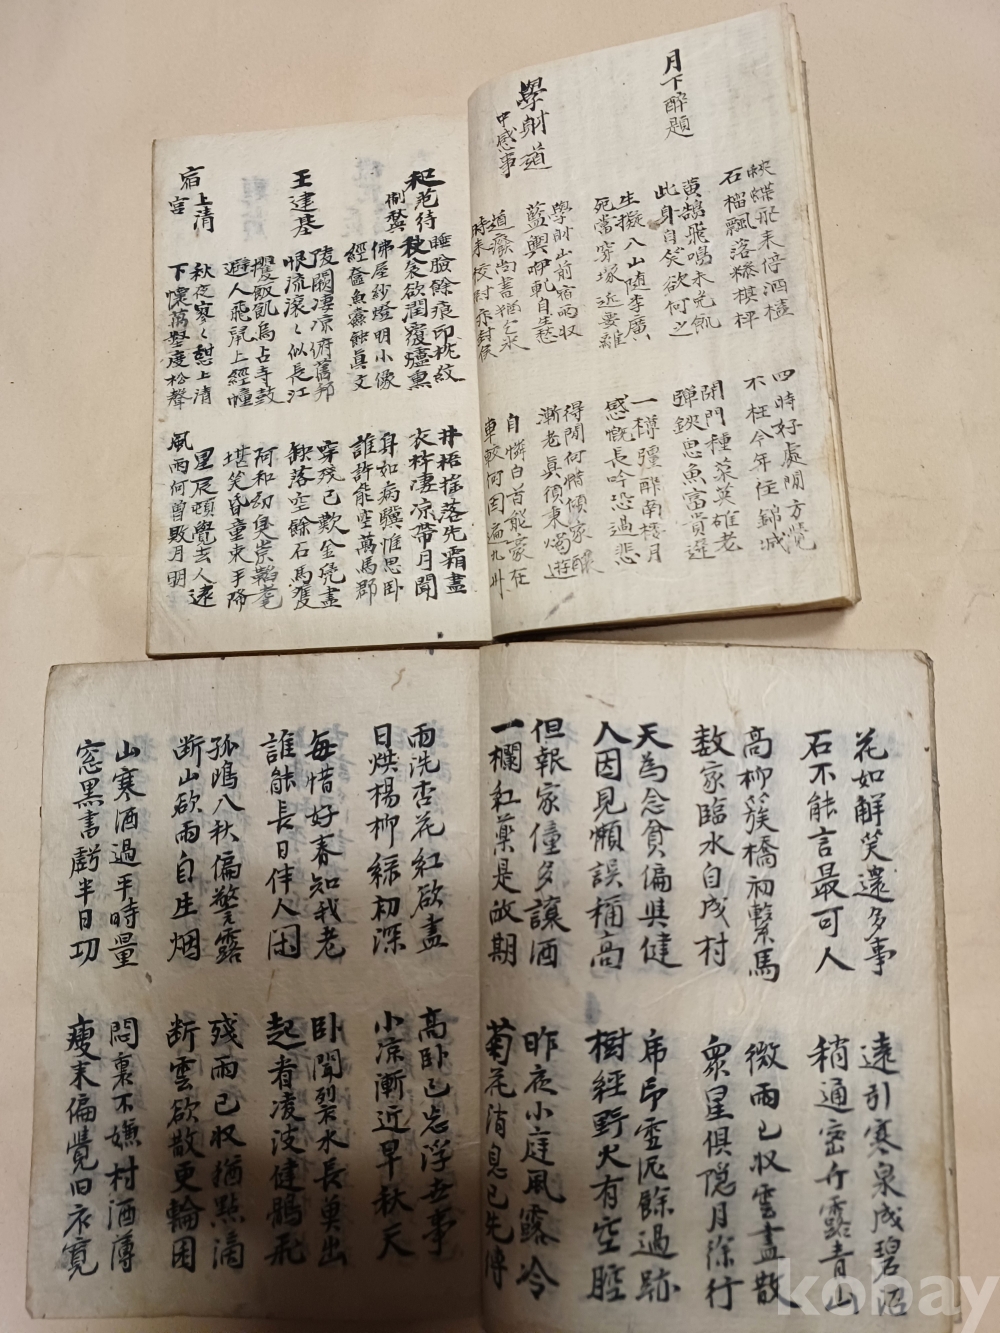 月下醉題
黃鵠飛鳴未免飢
此身自笑欲何之
閉門種菜英雄老
彈鋏思魚富貴遲
生擬入山隨李廣
死當穿塚近要離
一樽彊醉南樓月
感慨長吟恐過悲
學射道
中感事
學射山前宿雨收
藍輿咿軋自生愁
得閒何惜傾家釀
漸老眞須秉燭遊
道廢尚書猶乞米
時來校尉亦封侯
自憐白首能豪在
車轍何因遍九州
和范待
制
睡臉餘痕印枕紋
秋衾欲潤覆爐熏
井梧搖落先霜盡
衣杵凄凉帶月聞
佛屋紗燈明小像
經奩魚蠹蝕眞文
身如病驥惟思卧
誰許能空萬馬郡
王建墓
陵闕凄凉俯舊邦
恨流滾〻似長江
穿殘已歎金鳧盡
缺落空餘石馬雙
攫飯飢烏占寺鼓
避人飛鼠上經幢
阿和幼臭崇韜耄
堪笑昏童束手降
宿上清
宮
秋夜寥〻憩上清
下懷萬壑度松聲
星辰頓覺去人速
風雨何曾敗月明
花如解笑還多事
石不能言最可人
遠引寒泉成碧沼
稍通密竹露青山
高柳簇橋初繫馬
数家臨水自成村
微雨已収雲盡散
衆星俱隱月徐行
天為念貧偏與健
人因見懶誤稱高
席印雪泥餘過跡
樹經野火有空腔
但報家僮多讓酒
一欄紅藥是故期
昨夜小庭風露冷
菊花消息已先傳
雨洗杏花紅欲盡
日烘楊柳緑初深
高卧已忘浮世事
小凉漸近早秋天
每惜好春知我老
誰能長日伴人闲
卧聞裂水長奠出
起看凌波健鶻飛
孤鳴八秋偏警露
断山欲雨自生烟
殘雨已収猶點滴
断雲欲散更輪囷
山寒酒過平時量
窓黒書虧半日功
悶裏不嫌村酒薄
瘦末偏覺旧衣寬
kobay